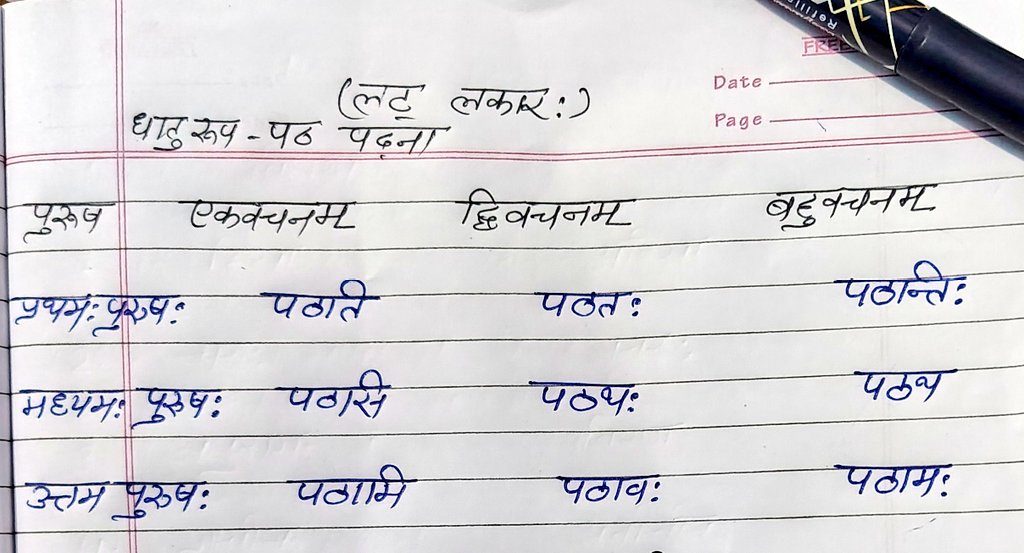 Refill
FREE
Date
Page
(लट् लकार:)
धातु रूप - पठ पढ़ना
पुरुष एकवचनम् द्विवचनम् बहुवचनम्
प्रथम: पुरुष: पठति पठत: पठन्ति:
मध्यम: पुरुष: पठसि पठथ: पठथ
उत्तम पुरुष: पठामि पठाव: पठाम: